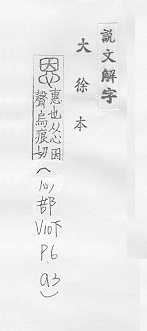 說文解字
大徐本
恩
惠也从心因
聲烏痕切
(心部
V10下
P.6
a3)